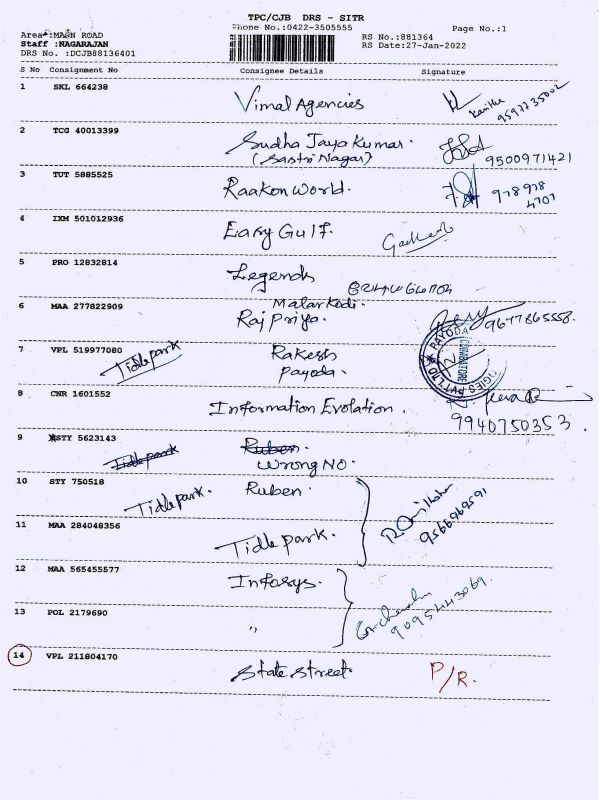 TPC/CJB DRS - SITR
Phone No.:0422-3505555
Page No.:1
Area :MAIN ROAD
Staff :NAGARAJAN
DRS No. :DCJB88136401
RS No.:881364
RS Date:27-Jan-2022
S No Consignment No Consignee Details Signature
1 SKL 664238 Vimal Agencies
9597735002
2 TCG 40013399 Sudha Jaya Kumar.
(Sastri Nagar) 9500971421
3 TUT 5885525 Raakon World. 978978
4707
4 IXM 501012936 Easy Gulf.
5 PRO 12832814 Legends
Malarkodi.
6 MAA 277822909 Raj Priya. 9677865558.
7 VPL 519977080 Tidle park Rakesh
Payoda.
PAYODA
COIMBATORE
8 CNR 1601552 Information Evolation.
9940750353.
9 STY 5623143 Tidle park Ruben.
Wrong NO.
10 STY 750518 Tidle park. Ruben.
9566969591
11 MAA 284048356 Tidle park.
12 MAA 565455577 Infosys.
9095443069.
13 POL 2179690 "
14 VPL 211804170 State Street P/R.